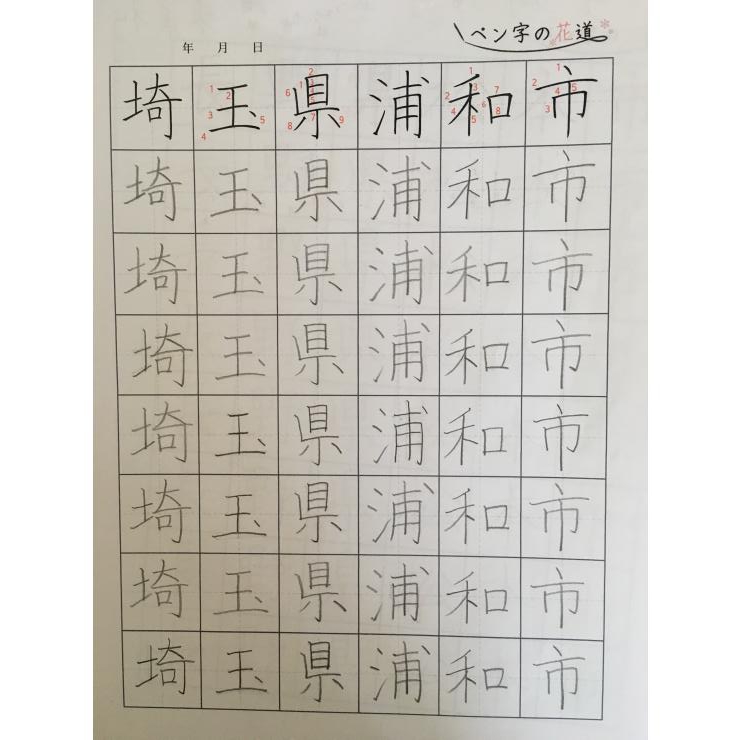 ペン字の花道
年 月 日
埼玉県浦和市
埼玉県浦和市
埼玉県浦和市
埼玉県浦和市
埼玉県浦和市
埼玉県浦和市
埼玉県浦和市
埼玉県浦和市